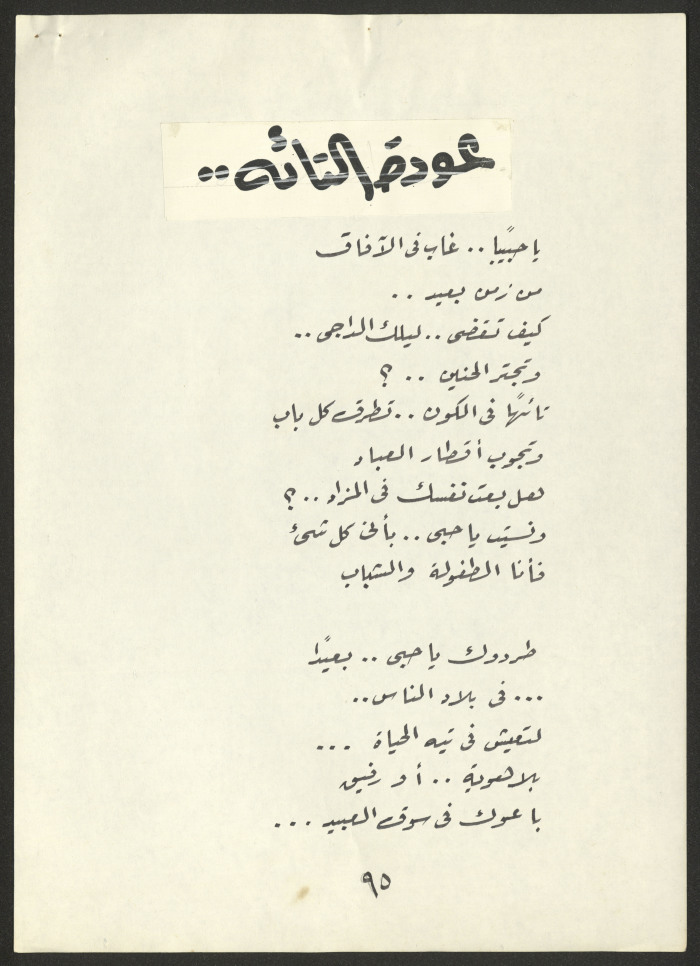 عودة التائه ..
يا حبيبًا .. غاب في الآفاق
من زمن بعيد ..
كيف تقضى .. ليلك الداجى ..
وتجتر الحنين .. ؟
تائهًا فى الكون .. تطرق كل باب
وتجوب أقطار العباد
هل بعت نفسك فى المزاد .. ؟
ونسيت يا حبى .. بأنى كل شئ
فأنا الطفولة والشباب
طردوك يا حبى .. بعيدًا
... فى بلاد الناس ..
لتعيش فى تيه الحياة ...
بلا هوية .. أو رفيق
باعوك فى سوق العبيد ...
٩٥